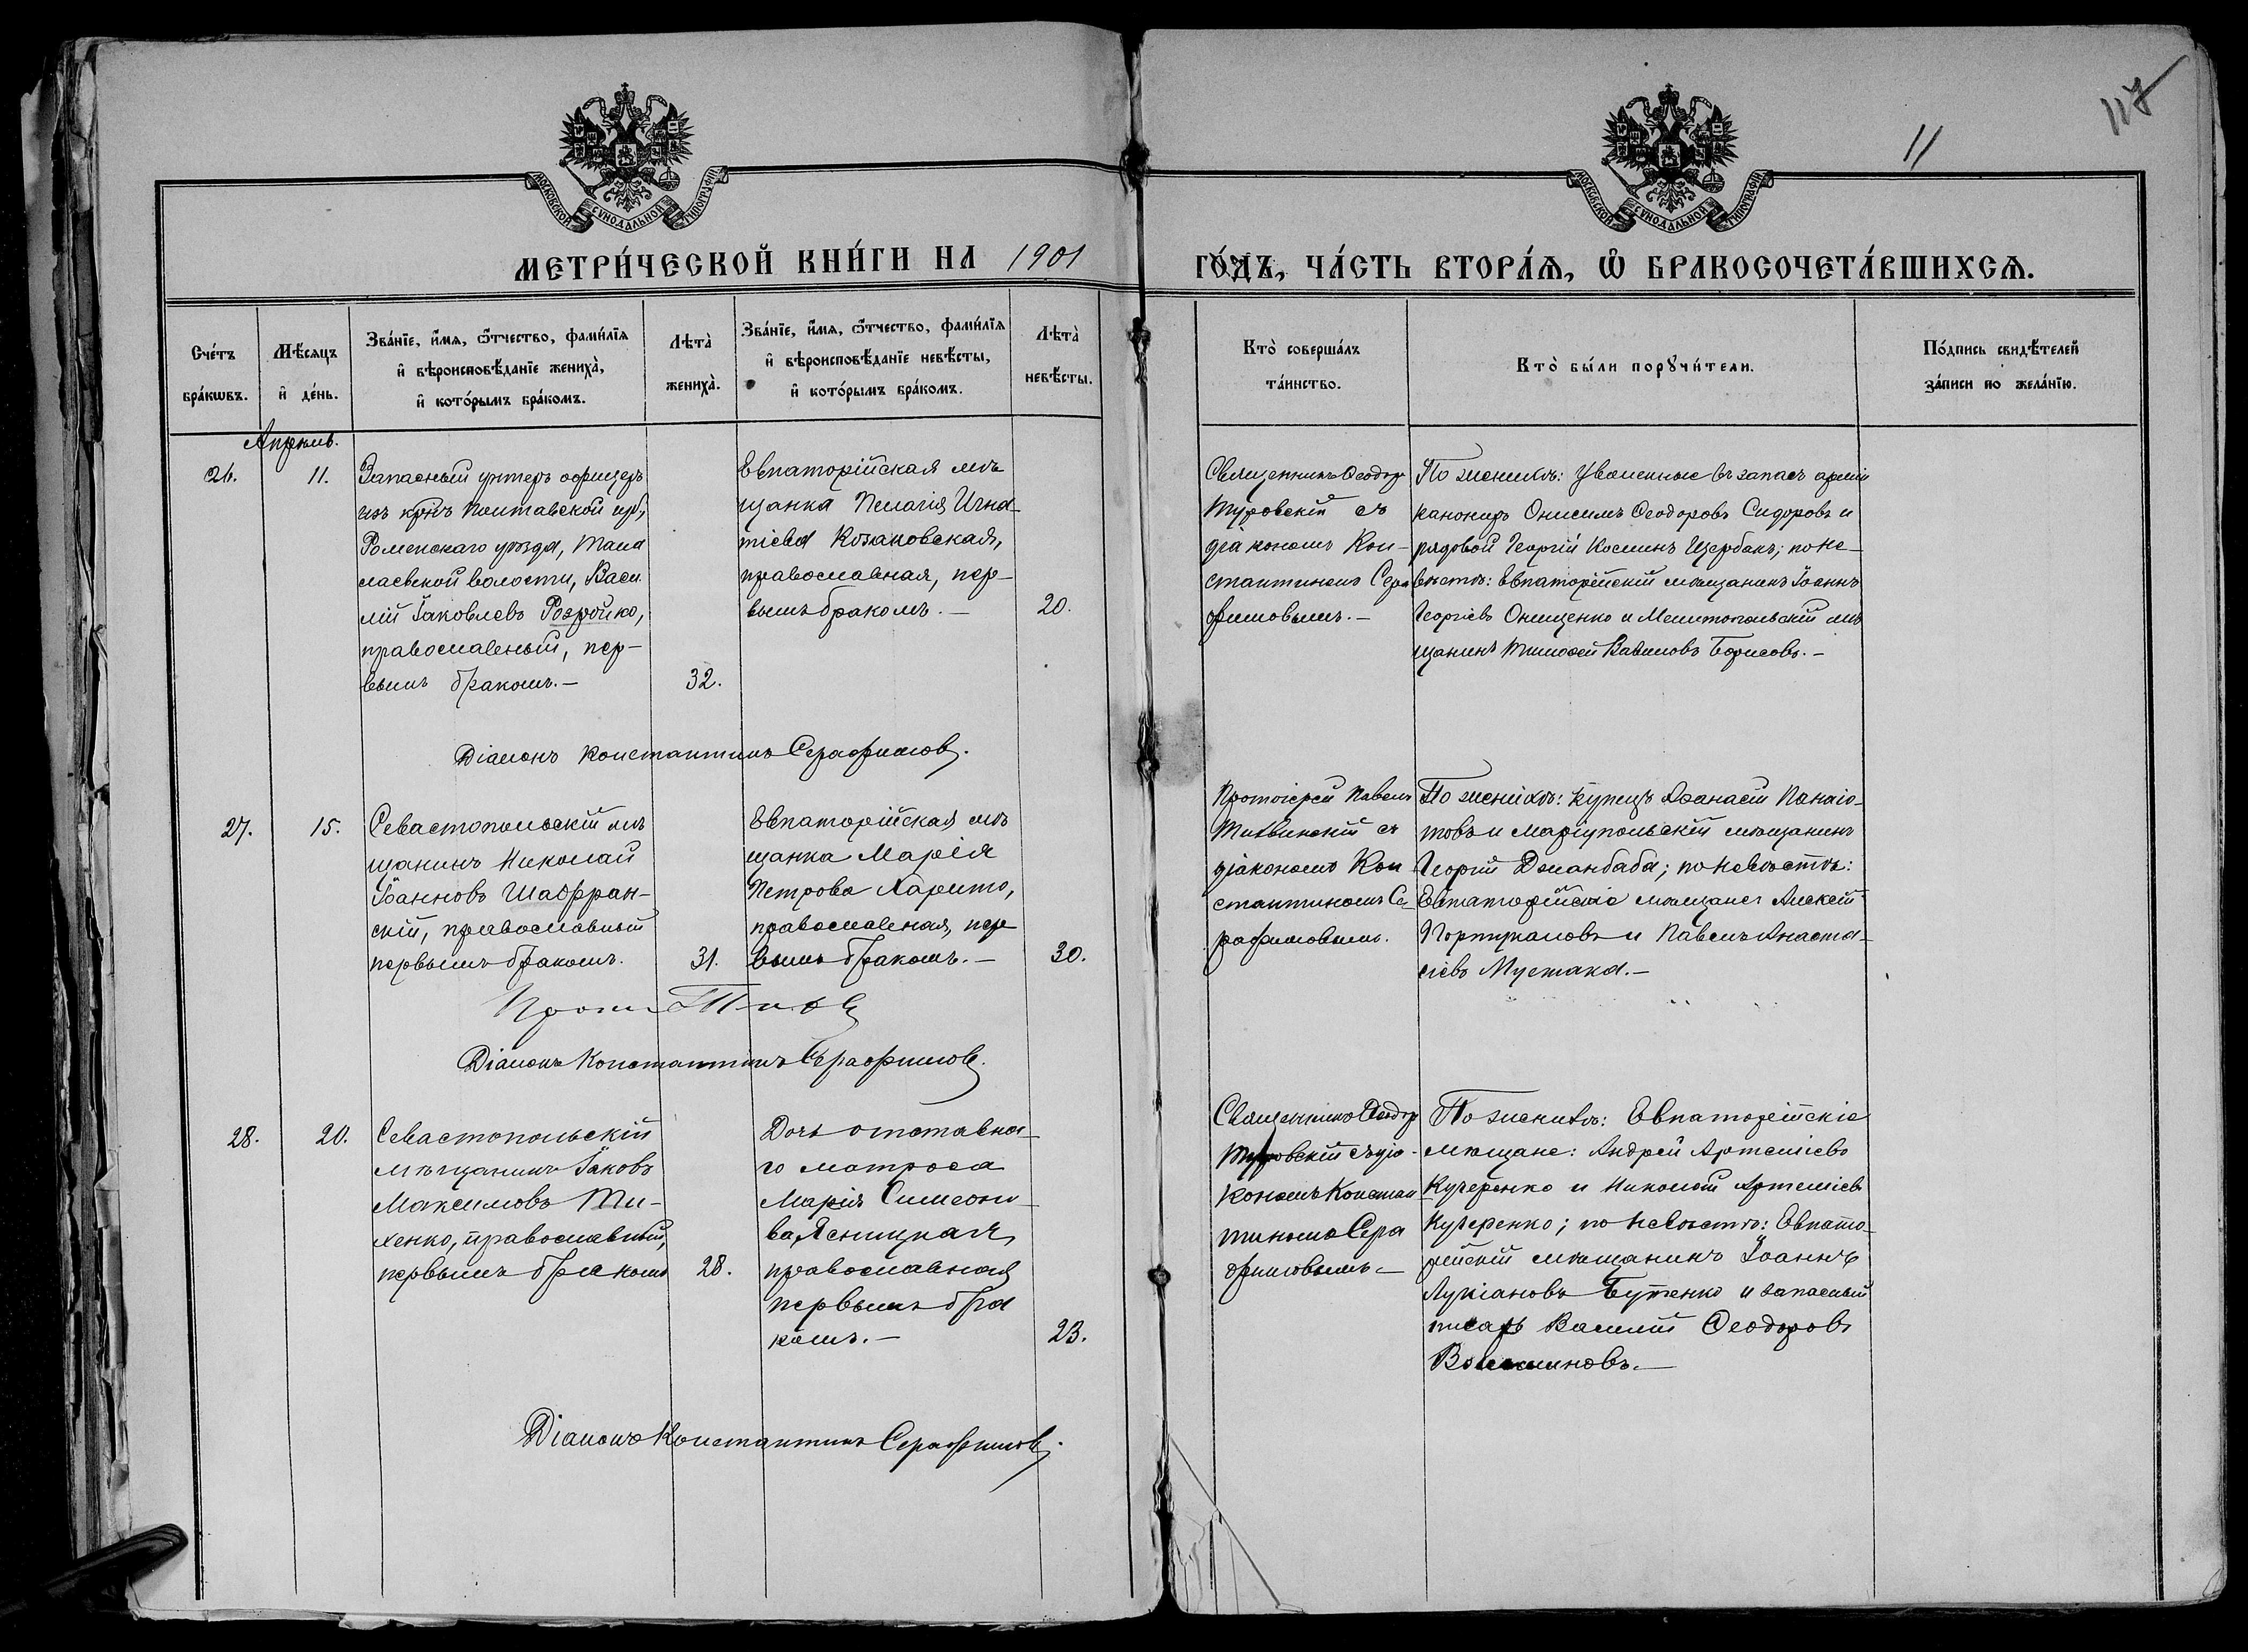 11
117
МОСКОВСКОЙ СѴНОДАЛЬНОЙ ТИПОГРАФІИ
МОСКОВСКОЙ СѴНОДАЛЬНОЙ ТИПОГРАФІИ
МЕТРИ́ЧЕСКОЙ КНИ́ГИ НА 1901 ГО́ДЪ, ЧА́СТЬ ВТОРА́Ѧ, Ѽ БРАКОСОЧЕТА́ВШИХСѦ.
Сче́тъ
бра́кѡвъ.
Мѣ́сѧцъ
и҆ де́нь.
Зва́нїе, и҆́мѧ, ѻ҆́тчество, фами́лїѧ
и҆ вѣроисповѣ́данїе жениха̀,
и҆ кото́рымъ бра́комъ.
Лѣта̀
жениха̀.
Зва́нїе, и҆́мѧ, ѻ҆́тчество, фами́лїѧ
и҆ вѣроисповѣ́данїе невѣ́сты,
и҆ кото́рымъ бра́комъ.
Лѣта̀
невѣ́сты.
Кто̀ соверша́лъ
та́инство.
Кто̀ бы́ли порꙋчи́тели.
По́дпись свидѣ́телей
за́писи по жела́нїю.
Апрѣль.
26.
11.
Запасный унтеръ офицеръ
изъ крнъ Полтавской губ,
Роменскаго уѣзда,
лаевской волости, Васи
лій Іаковлевъ Розройко,
православный, пер-
вымъ бракомъ.-
32.
Евпаторійская мѣ
щанка Пелагія Игна-
тіева Козаковская,
православная, пер-
вымъ бракомъ.-
20.
Священникъ Ѳеодор
Туровскій съ
діакономъ Кон-
стантиномъ Сера
фимовымъ.-
По женихѣ: Уволенные въ запасъ арміи
канониръ Онисимъ Ѳеодоровъ Сидоровъ и
рядовой Георгій Косминъ Щербакъ; по не-
вѣстѣ: Евпаторійскій мѣщанинъ Іоаннъ
Георгіевъ Онищенко и Мелитопольскій мѣ
щанинъ Тимоѳей Вавиловъ Борисовъ.-
Діаконъ Константинъ Серафимовъ.
27.
15.
Севастопольскій мѣ
щанинъ Николай
Іоанновъ Шафран-
скій, православный
первымъ бракомъ.
31.
Евпаторійская мѣ
щанка Марія
Петрова Харито,
православная, пер
вымъ бракомъ.-
30.
Протоіерей Павелъ
Тихвинскій съ
діакономъ Кон
стантиномъ Се-
рафимовымъ.
По женихѣ: купецъ Аѳанасій Панаіо-
товъ и Маріупольскій мѣщанинъ
Георгій Джанбаба; по невѣстѣ:
Евпаторійскіе мѣщане Алексѣй
и Павелъ Анаста-
сіевъ Мустака.-
Діаконъ Константинъ Серафимовъ.
28.
20.
Севастопольскій
мѣщанинъ Іаковъ
Максимовъ Ти-
хенко, православный,
первымъ бракомъ
28.
Дочь отставна-
го матроса
Марія Симеоно-
ва Ясницкая,
православная
первымъ бра
комъ.-
23.
Священникъ Ѳеодор
Туровскій съ діа-
кономъ Констан
тиномъ Сера
фимовымъ.-
По женихѣ: Евпаторійскіе
мѣщане: Андрей Артеміевъ
Кучеренко и Николай Артеміевъ
Кучеренко; по невѣстѣ: Евпато-
рійскій мѣщанинъ Іоаннъ
Лукіановъ Бутенко и запасный
писарь Василій Ѳеодоровъ
Діаконъ Константинъ Серафимовъ.